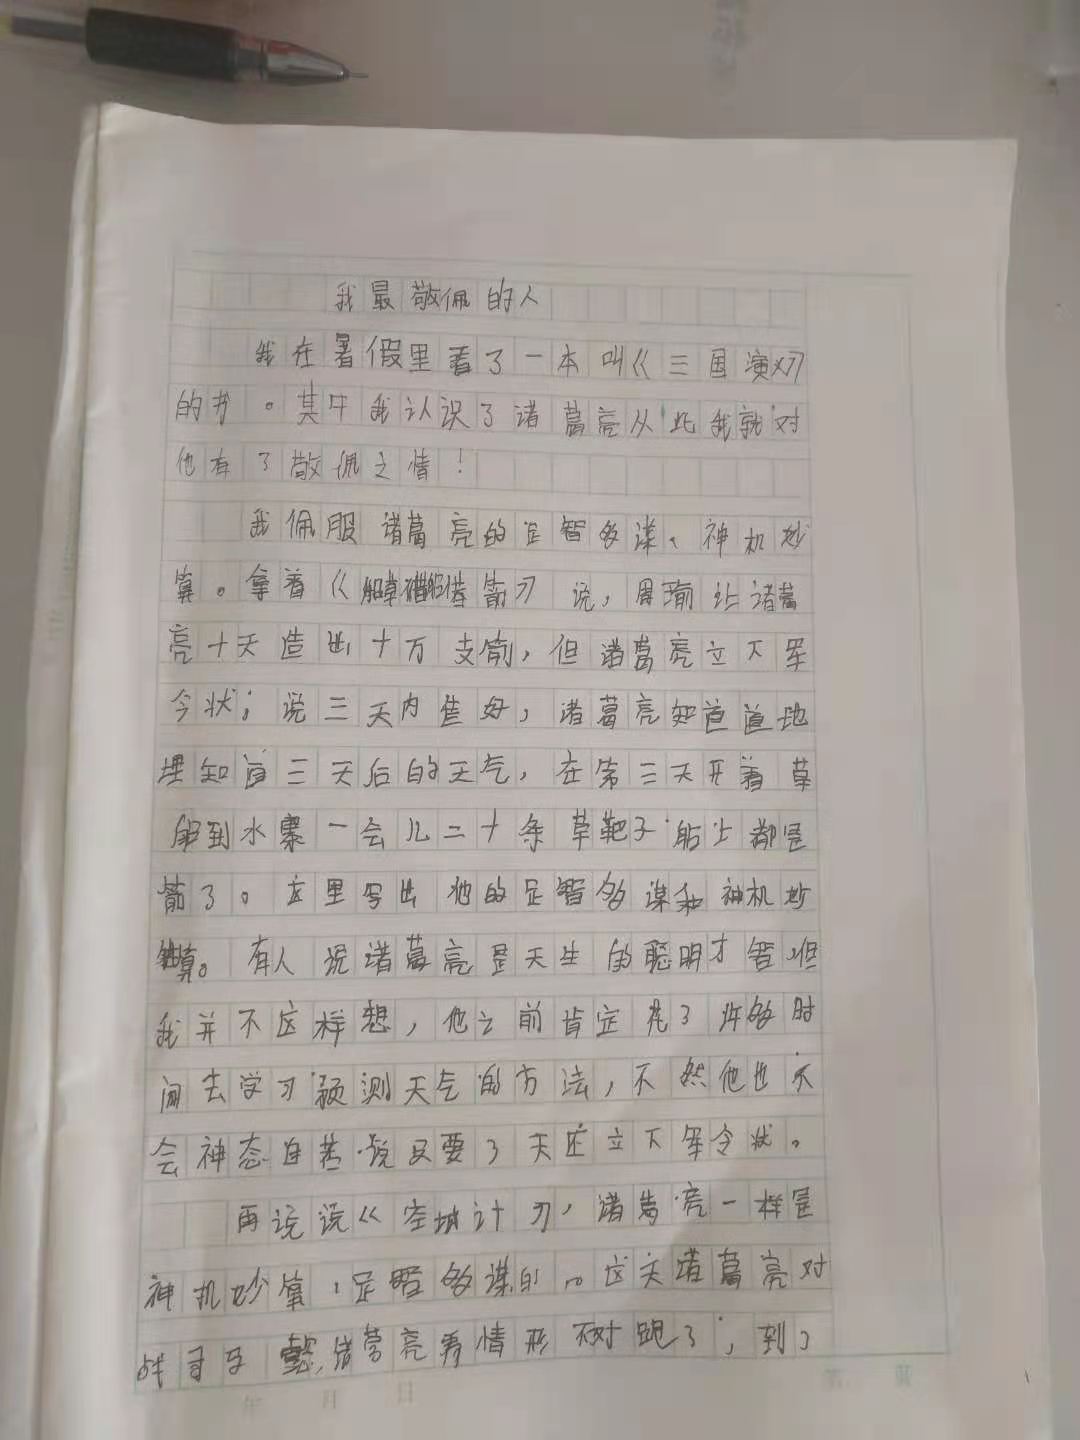 我最敬佩的人
我在暑假里看了一本叫《三国演义》
的书。其中我认识了诸葛亮从此我就对
他有了敬佩之情！
我佩服诸葛亮的足智多谋、神机妙
算。拿着《草船借箭》说，周瑜让诸葛
亮十天造出十万支箭，但诸葛亮立下军
令状；说三天内造好，诸葛亮知道道地
理知道三天后的天气，在第三天开着草
船到水寨一会儿二十条草靶子船上都是
箭了。这里写出他的足智多谋和神机妙
算。有人说诸葛亮是天生的聪明才智但
我并不这样想，他之前肯定花了许多时
间去学习预测天气的方法，不然他也不
会神态自若说只要了天还立下军令状。
再说说《空城计》，诸葛亮一样是
神机妙算，足智多谋的。这天诸葛亮对
战司马懿，诸葛亮看情形不对跑了，到了
年 月 日
第 页